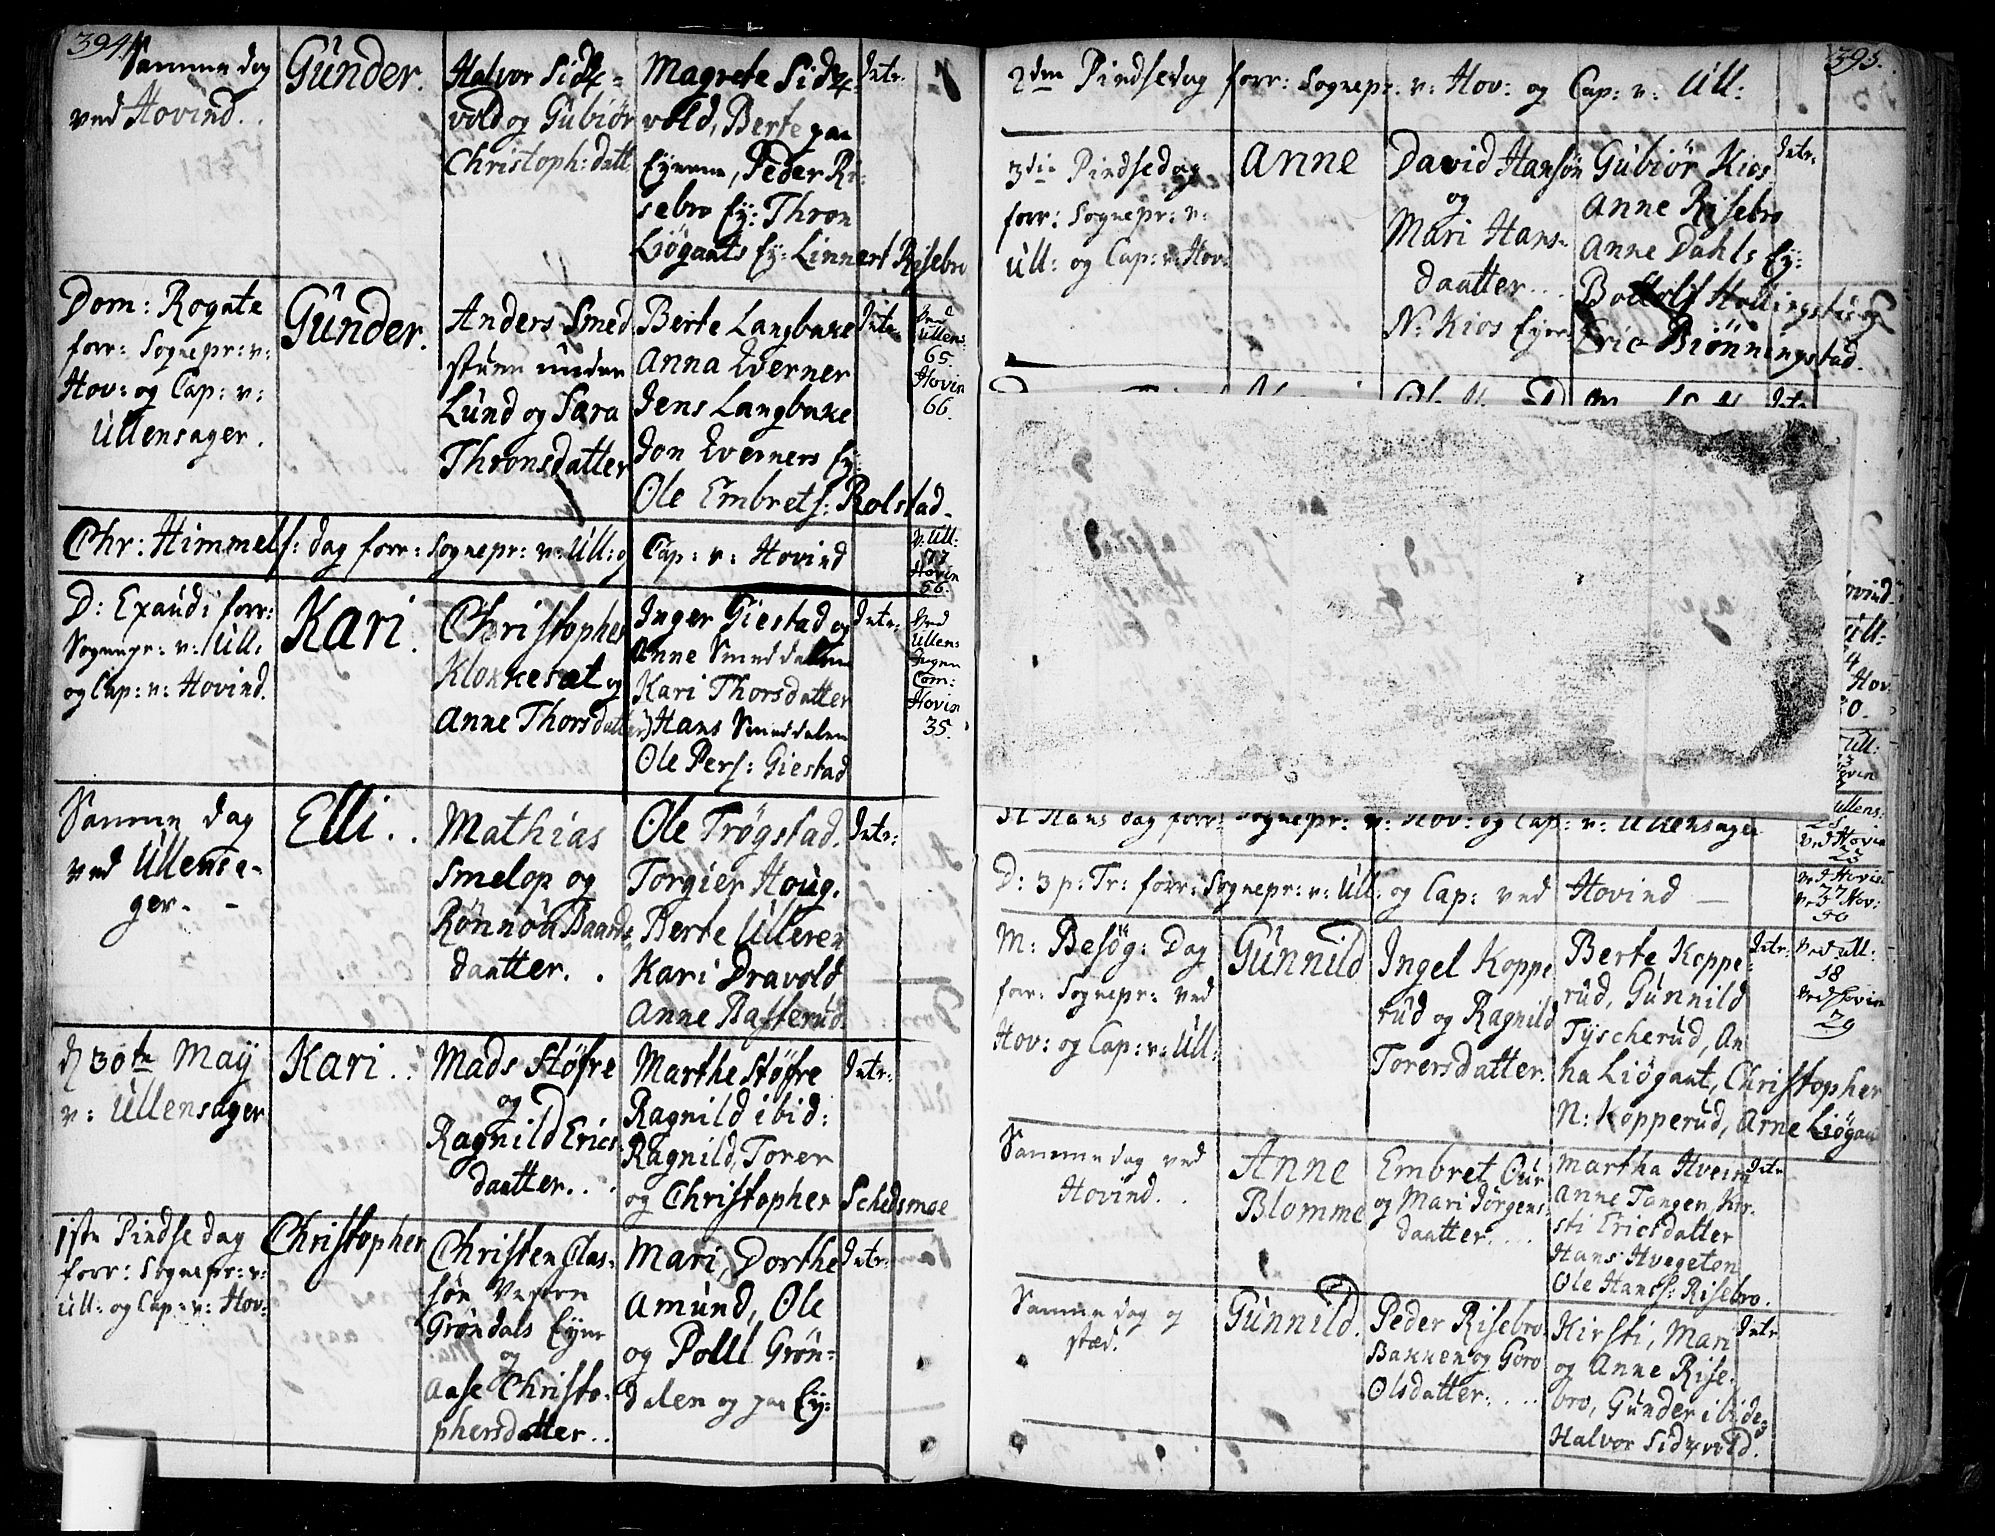 394.
Samme dag
ved Hovind.
Gunder.
Halvor Sidz-
vold og Gubiør
Christoph: datt
Magrete Sidz-
vold, Berte paa
Eyerne, Peder Ri-
sebro Ey: Thron
Liøgaats Ey: Linnert Risebro
Intr:
Dom: Rogate
forr: Sognepr: v:
Hov: og Cap: v:
Ullensager.
Gunder.
Anders Smed
stuen under
Lund og Sara
Thronsdatter
Berte Langbake
Anna Everner
Jens Langbake
Jon Everners Ey:
Ole Embretf: Rolstad
Intr:
Ved
Ullens:
65.
Hovin
66.
Chr: Himmelf: dag forr: Sognepr: v: Ull: og Cap: v: Hovind
v: Ull:
77
Hovin
56.
D: Exaudi forr:
Sognepr: v: Ull:
og Cap: v: Hovind.
Kari.
Christopher
Klokkesæt og
Anne Thorsdatter
Inger Giestad og
Anne Smeddalen
Kari Thorsdatter
Hans Smeddalen
Ole Pers: Giestad
Intr:
Ved
Ullens:
Ingen
Com:
Hovin
35.
Samme dag
ved Ullensa-
ger. -
Elli.
Mathias
Smelop og
Rønnou Baards
daatter.
Ole Trøgstad.
Torgier Houg.
Berte Ulleren
Kari Dravold
Anne Rasterud.
Intr:
d 30te May
v: Ullensager
Kari.
Mads Støfre
og
Ragnild Erics
daatter.
Marthe Støfre
Ragnild ibid:
Ragnild, Torer
og Christopher Schedsmoe
Intr:
1ste Pindse dag
forr: Sognepr: v:
Ull: og Cap: v: Hov:
Christopher
Christen Clas-
søn Vestre
Grøndals Eyer
og
Aase Christo-
phersdatter..
Mari, Dorthe
Amund, Ole
og Poul Grøn-
dalen og paa Ey:
Intr:
395.
2den Pindsedag forr: Sognepr: v: Hov: og Cap: v: Ull:
3die Pindsedag
forr: Sognepr: v:
Ull: og Cap: v: Hov:
Anne
David Hansøn
og
Mari Hans-
daatter...
N: Kios Eyer
Gubiør Kios
Anne Risebro
Anne Dahls Ey:
Botolf Hellingstad og
Eric Biønningstad.
Intr:
St Hans dag forr: Sognepr: v: Hov: og Cap: v: Ullensager
Ullens:
ved Hovin
23
D: 3 p: Tr: forr: Sognepr: v: Ull: og Cap: ved Hovind
M: Besøg: Dag
forr: Sognepr: ved
Hov: og Cap: v: Ull:
Gunnild
Ingel Koppe
rud og Ragnild
Torersdatter.
Berte Koppe-
rud, Gunnild
Tyscherud, An
na Liøgaat, Christopher
N: Kopperud, Arne Liøgaat
Intr:
Ved Ull:
18
ved Hovin
29
Samme dag ved
Hovind.
Anne
Blomme
Embret Our
og Mari Jørgens
daatter....
Martha Hvein
Anne Tangen, Kir-
sti Ericsdatter
Hans Hvegeton
Ole Hansf: Risebro.
Intr
Samme dag og
stæd.
Gunnild.
Peder Risebro
Bakken og Goro
Olsdatter....
Kirsti, Mari
og Anne Rise-
bro, Gunder ibid: og
Halvor Sidzvold.
Intr